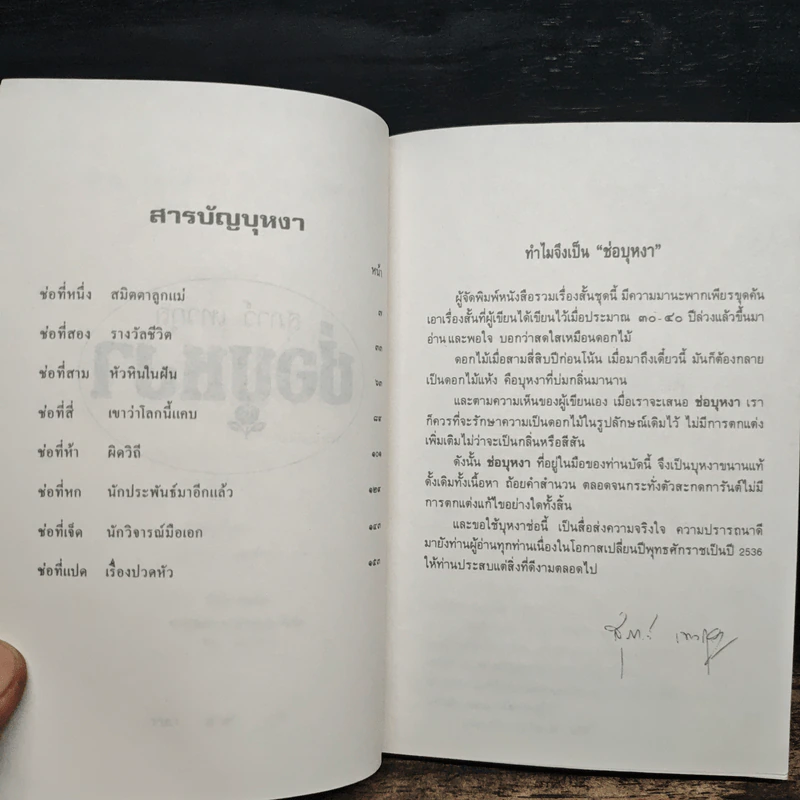 สารบัญบุหงา
หน้า
ช่อที่หนึ่ง สมิตตาลูกแม่ ๓
ช่อที่สอง รางวัลชีวิต ๓๓
ช่อที่สาม หัวหินในฝัน ๖๓
ช่อที่สี่ เขาว่าโลกนี้แคบ
ช่อที่ห้า ผิดวิถี ๑๐๑
ช่อที่หก นักประพันธ์มาอีกแล้ว ๑๒๙
ช่อที่เจ็ด นักวิจารณ์มือเอก ๑๔๓
ช่อที่แปด เรื่องปวดหัว ๑๕๓
ทำไมจึงเป็น “ช่อบุหงา”
ผู้จัดพิมพ์หนังสือรวมเรื่องสั้นชุดนี้ มีความมานะพากเพียรขุดค้น
เอาเรื่องสั้นที่ผู้เขียนได้เขียนไว้เมื่อประมาณ ๓๐-๔๐ ปีล่วงแล้วขึ้นมา
อ่าน และพอใจ บอกว่าสดใสเหมือนดอกไม้
ดอกไม้เมื่อสามสี่สิบปีก่อนโน้น เมื่อมาถึงเดี๋ยวนี้ มันก็ต้องกลาย
เป็นดอกไม้แห้ง คือบุหงาที่บ่มกลิ่นมานาน
และตามความเห็นของผู้เขียนเอง เมื่อเราจะเสนอ ช่อบุหงา เรา
ก็ควรที่จะรักษาความเป็นดอกไม้ในรูปลักษณ์เดิมไว้ ไม่มีการตกแต่ง
เพิ่มเติมไม่ว่าจะเป็นกลิ่นหรือสีสัน
ดังนั้น ช่อบุหงา ที่อยู่ในมือของท่านบัดนี้ จึงเป็นบุหงาขนานแท้
ดั้งเดิมทั้งเนื้อหา ถ้อยคำสำนวน ตลอดจนกระทั่งตัวสะกดการันต์ไม่มี
การตกแต่งแก้ไขอย่างใดทั้งสิ้น
และขอใช้บุหงาช่อนี้ เป็นสื่อส่งความจริงใจ ความปรารถนาดี
มายังท่านผู้อ่านทุกท่านเนื่องในโอกาสเปลี่ยนปีพุทธศักราชเป็นปี 2536
ให้ท่านประสบแต่สิ่งที่ดีงามตลอดไป